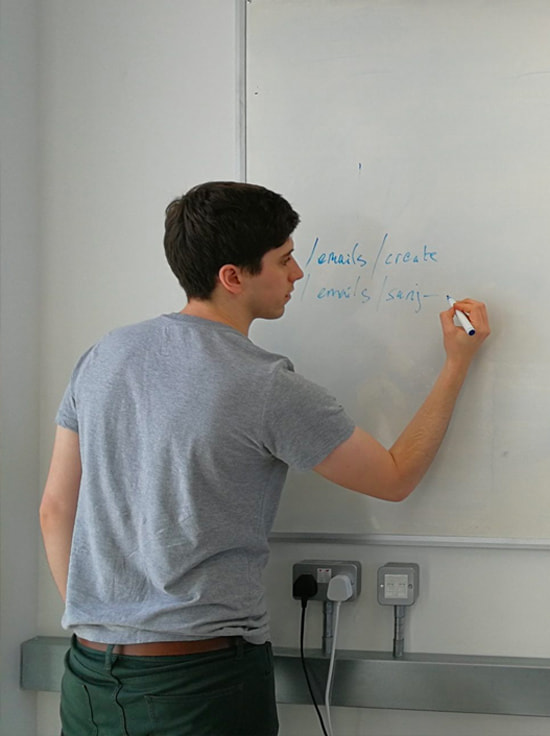 /emails/create
/emails/